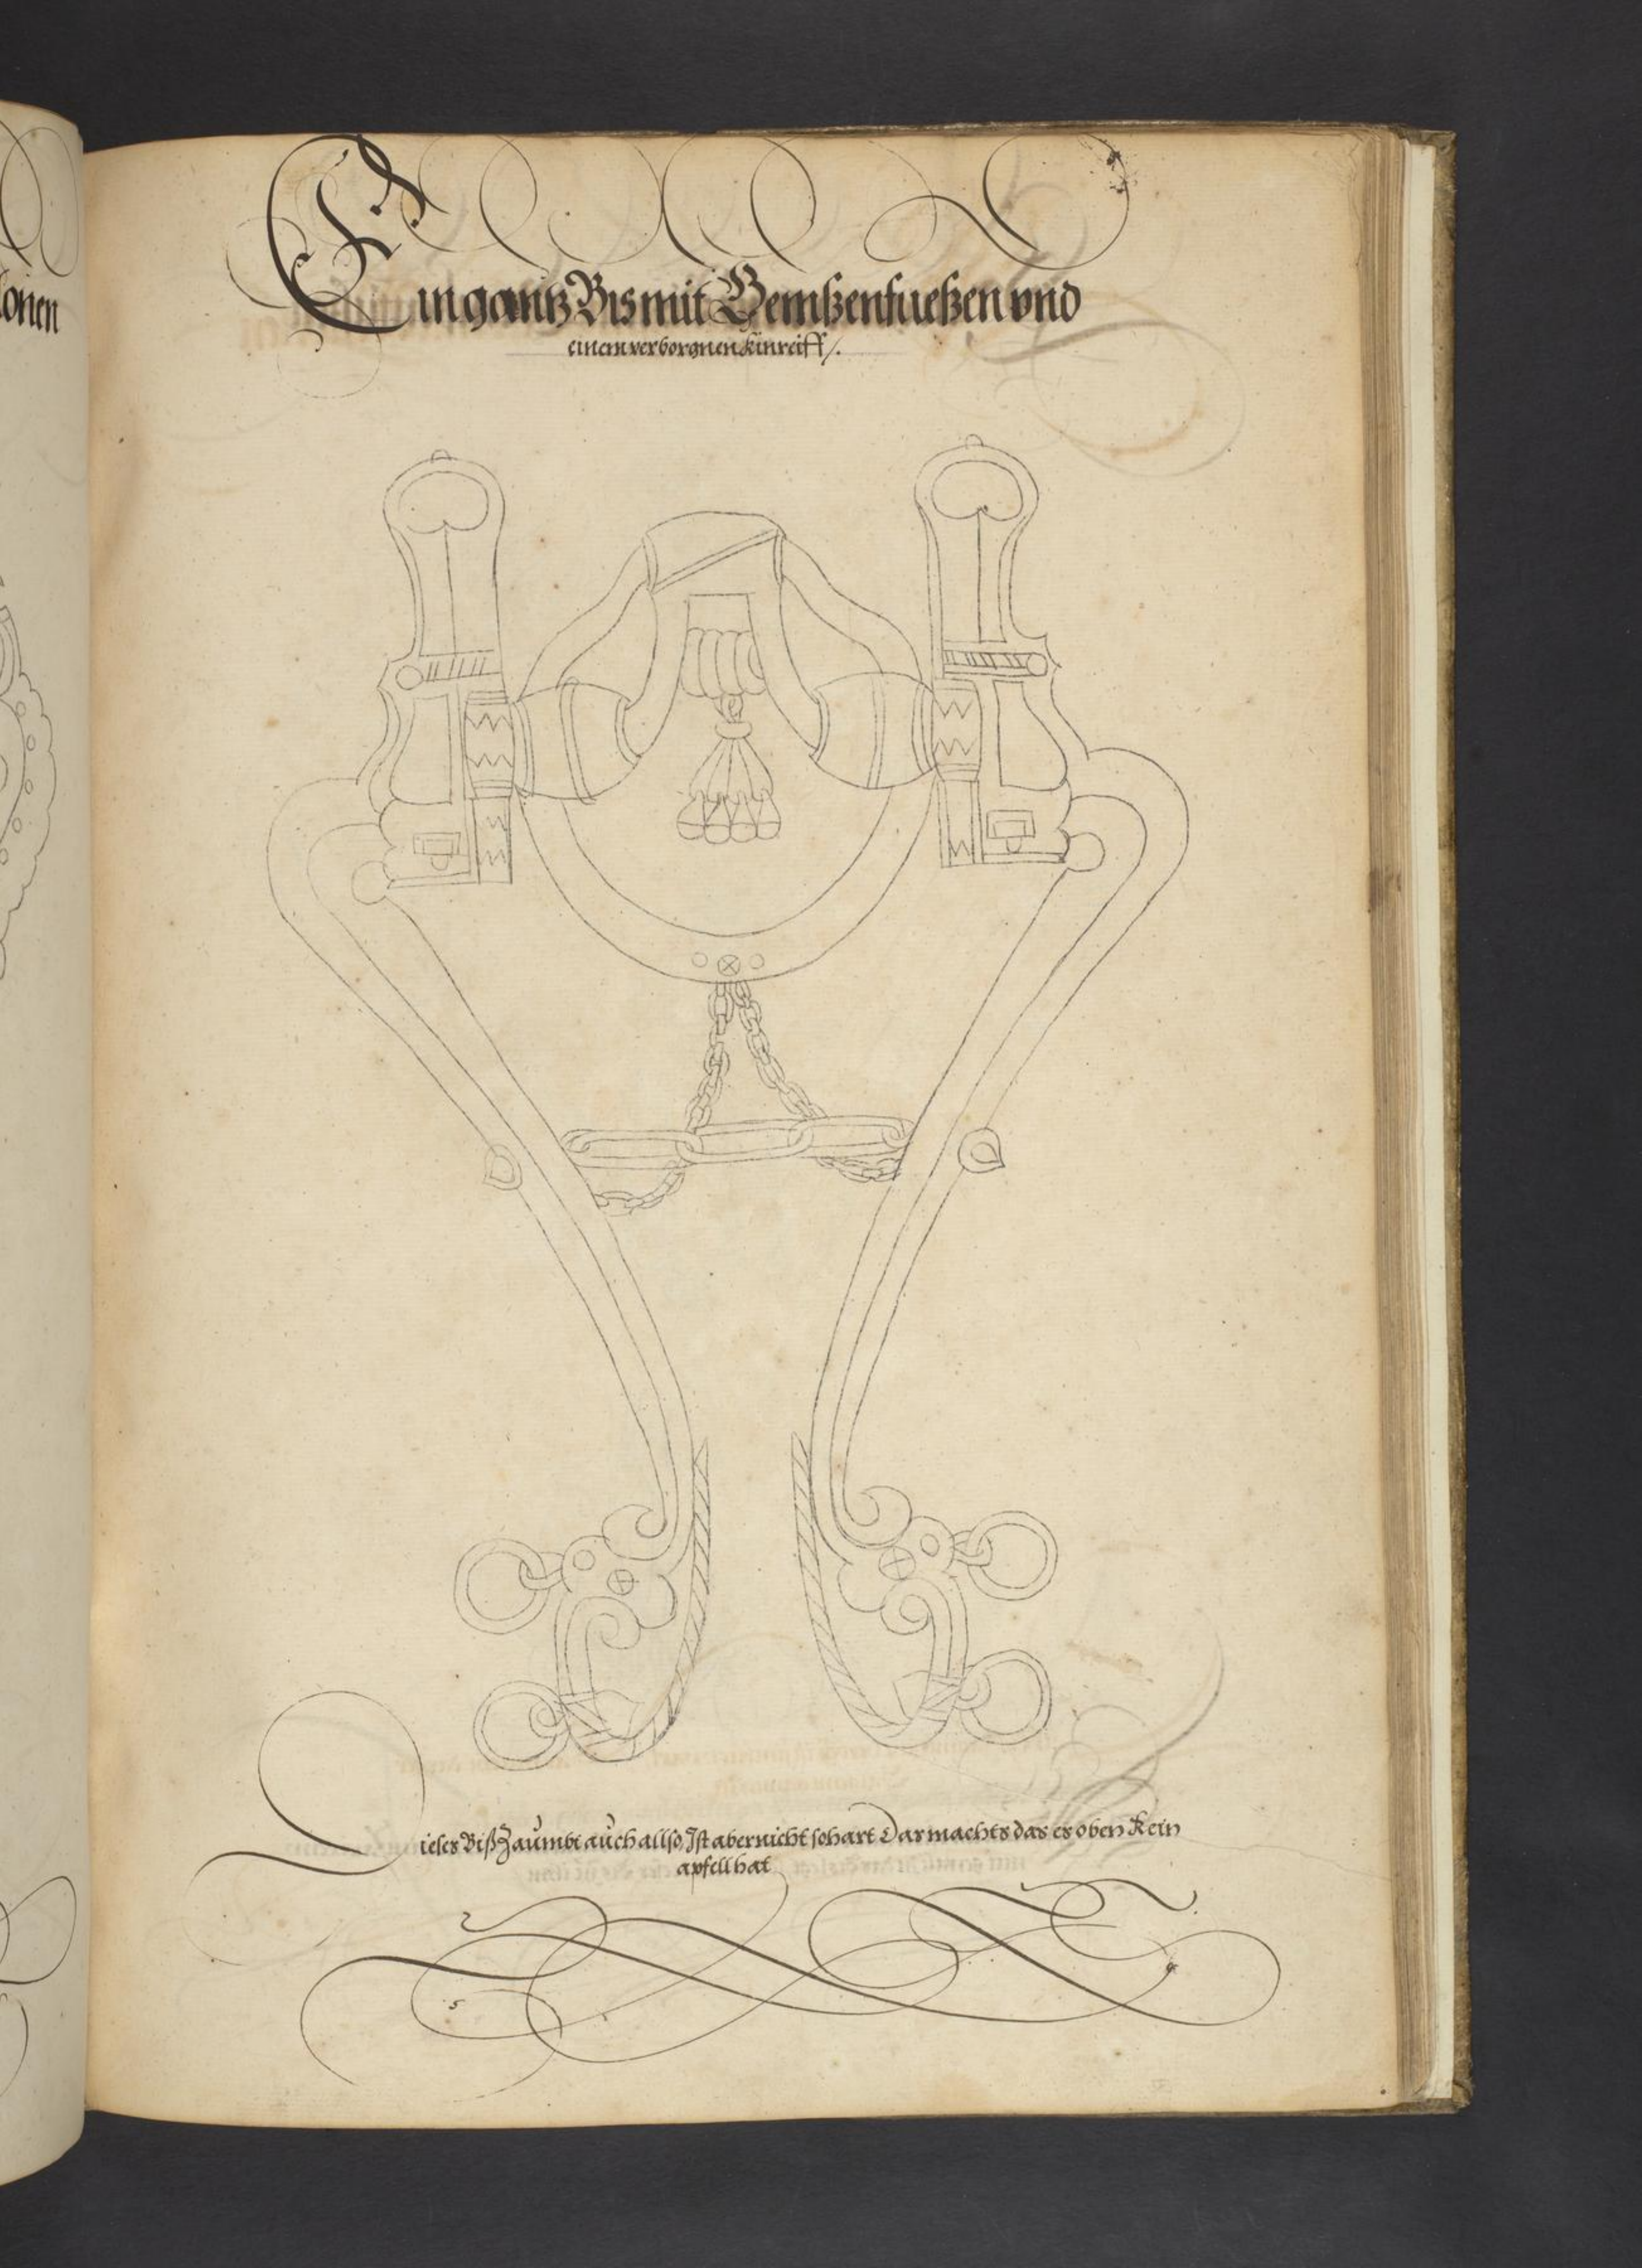 onen
Ein gantz Bis mit Gemßenfueßen vnd
einem verborgnen Kinreiff /.
Dieses Biß Zaumbt auch allso, Ist aber nicht so hart Das machts das es oben Kein
apfell hat